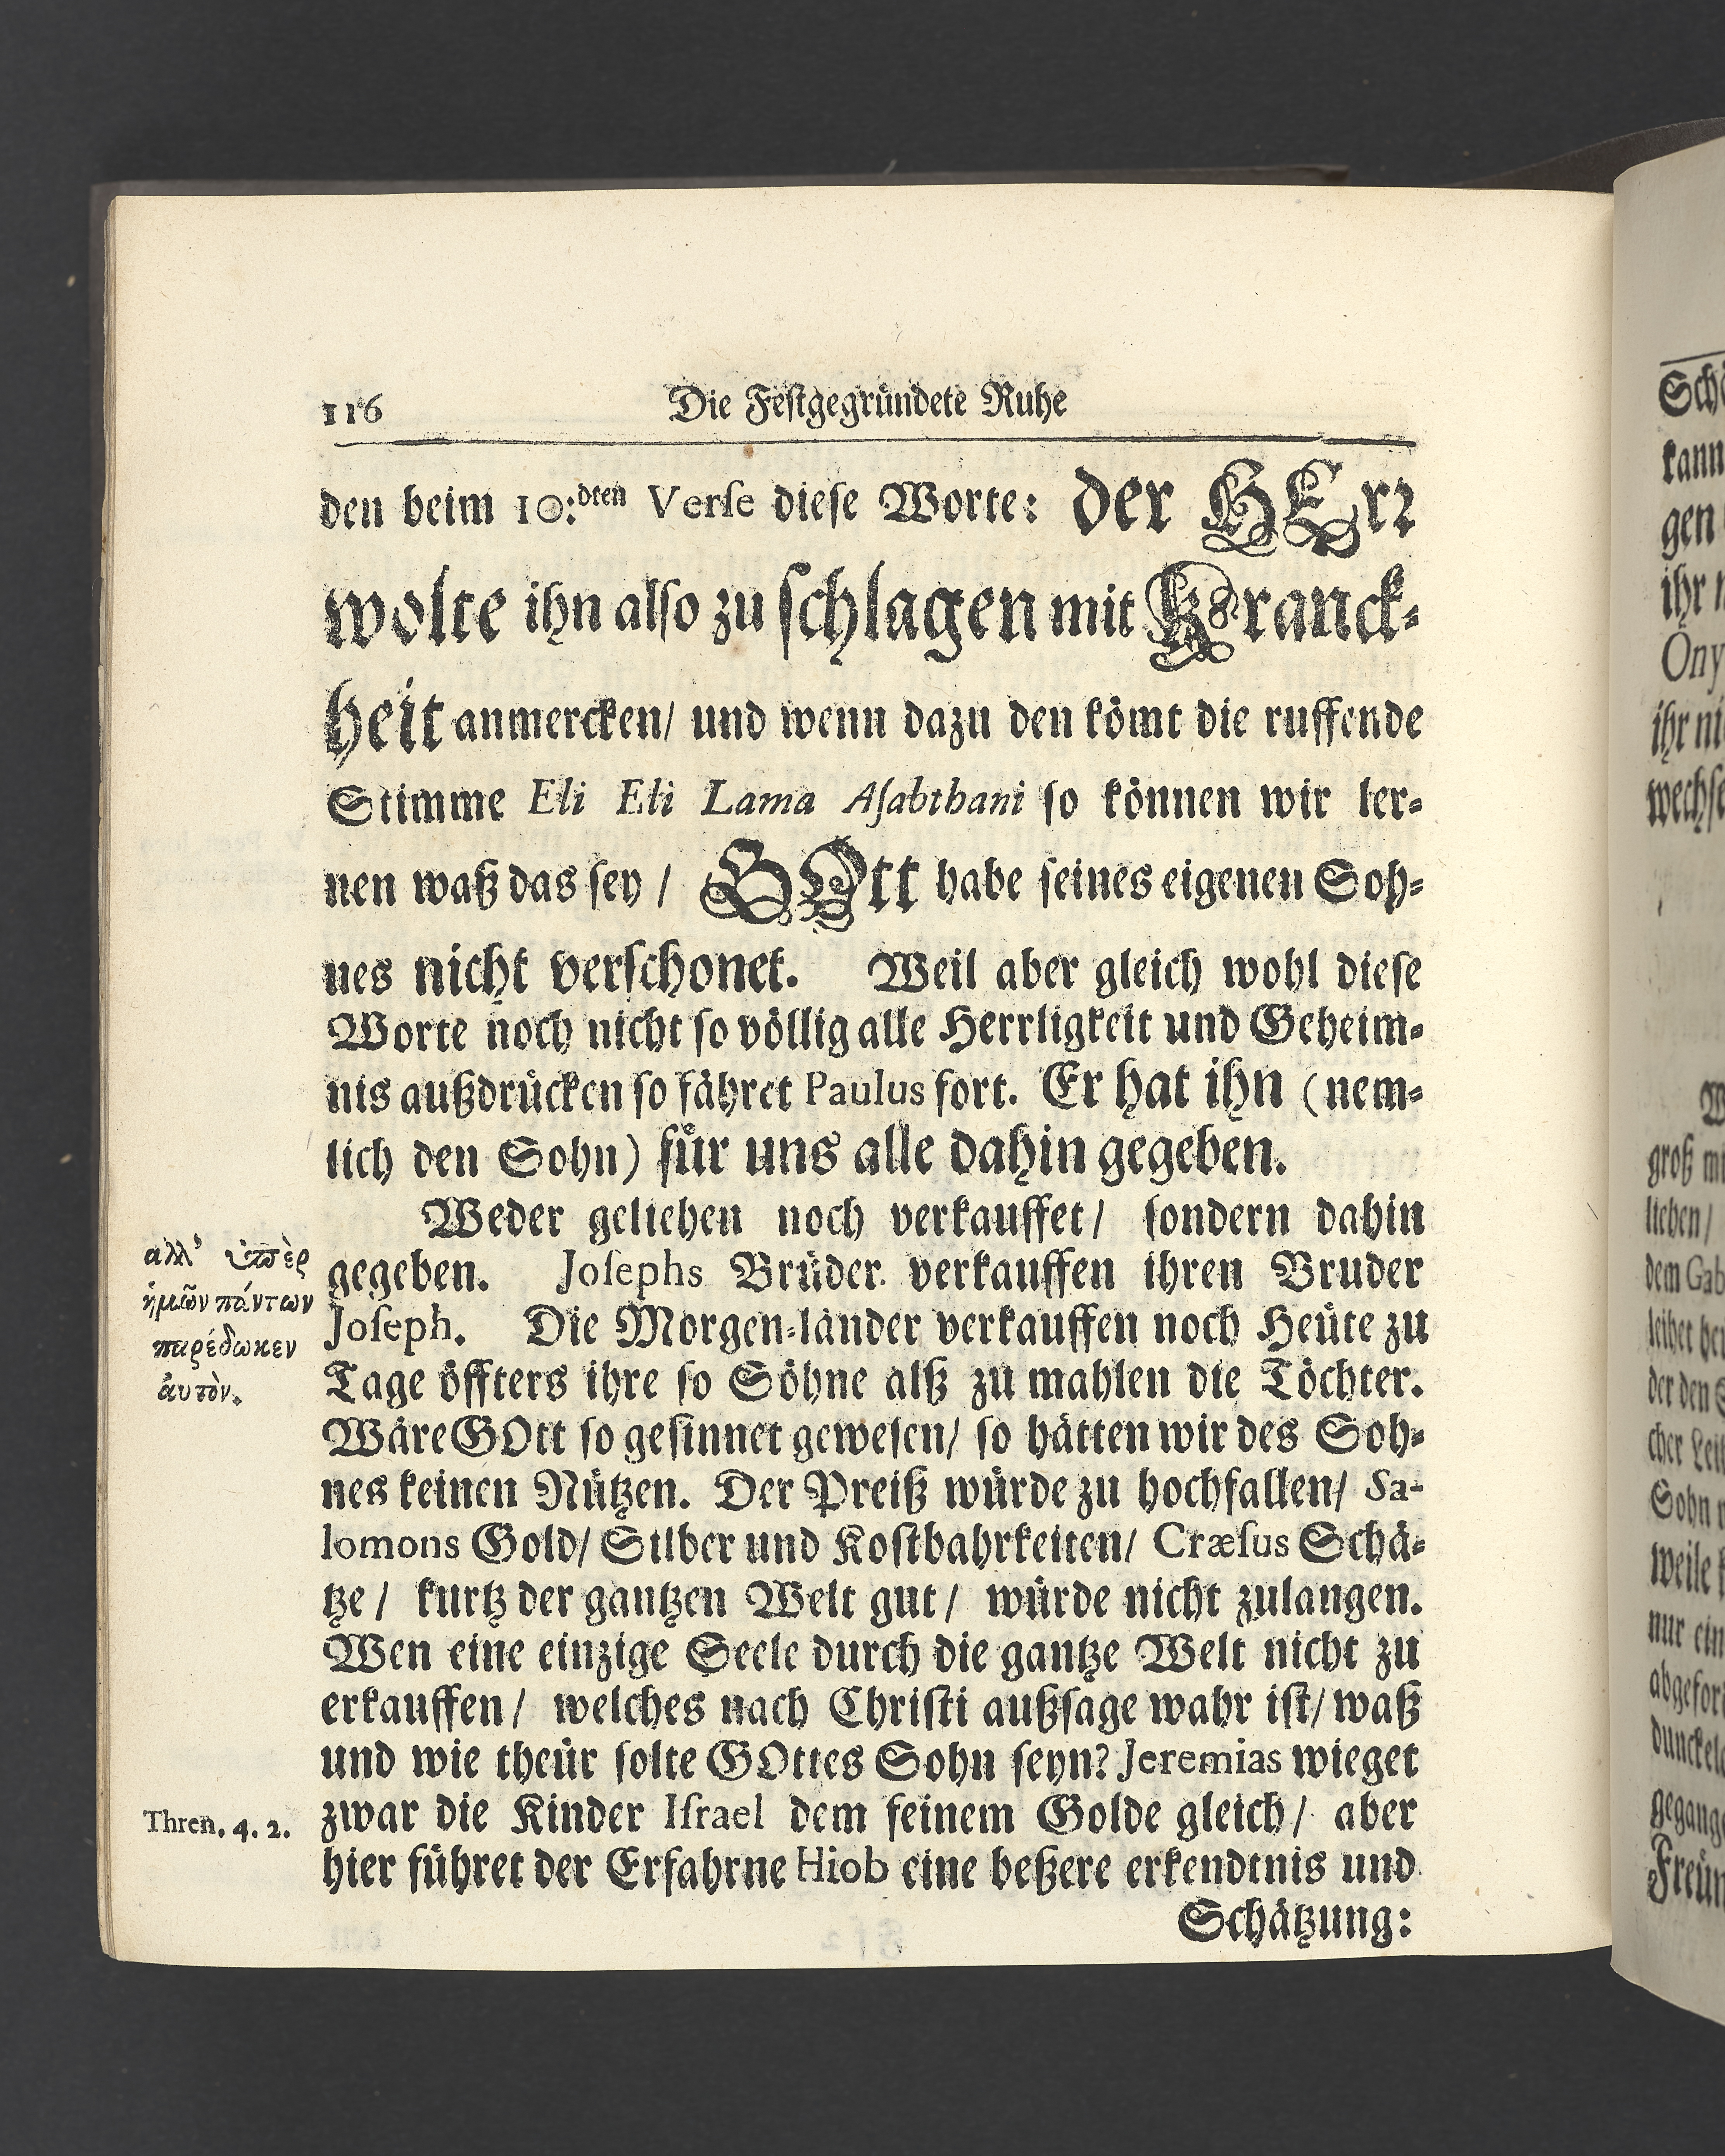 116 Die Festgegründete Ruhe
den beim 10:dten Verse diese Worte: der HErr
wolte ihn also zu schlagen mit Kranck-
heit anmercken/ und wenn dazu den kömt die ruffende
Stimme Eli Eli Lama Asabthani so können wir ler-
nen waß das sey / GOtt habe seines eigenen Soh-
nes nicht verschonet. Weil aber gleich wohl diese
Worte noch nicht so völlig alle Herrligkeit und Geheim-
nis außdrücken so fähret Paulus fort. Er hat ihn (nem-
lich den Sohn) für uns alle dahin gegeben.
Weder geliehen noch verkauffet/ sondern dahin
gegeben. Josephs Brüder verkauffen ihren Bruder
Joseph. Die Morgen-länder verkauffen noch Heüte zu
Tage öffters ihre so Söhne alß zu mahlen die Töchter.
Wäre GOtt so gesinnet gewesen/ so hätten wir des Soh-
nes keinen Nützen. Der Preiß würde zu hochfallen/ Sa-
lomons Gold/ Silber und Kostbahrkeiten/ Cræsus Schä-
tze / kurtz der gantzen Welt gut / würde nicht zulangen.
Wen eine einzige Seele durch die gantze Welt nicht zu
erkauffen / welches nach Christi außsage wahr ist/ waß
und wie theür solte GOttes Sohn seyn? Jeremias wieget
zwar die Kinder Israel dem feinem Golde gleich / aber
hier führet der Erfahrne Hiob eine beßere erkendtnis und
Schätzung:
αλλ' ὑπὲρ
ἡμῶν πάντων
παρέδωκεν
ἀυτὸν.
Thren. 4. 2.
kann
gen
ihr
Ony
groß
lieben /
dem Gab
der den
Sohn
weile
nur ein